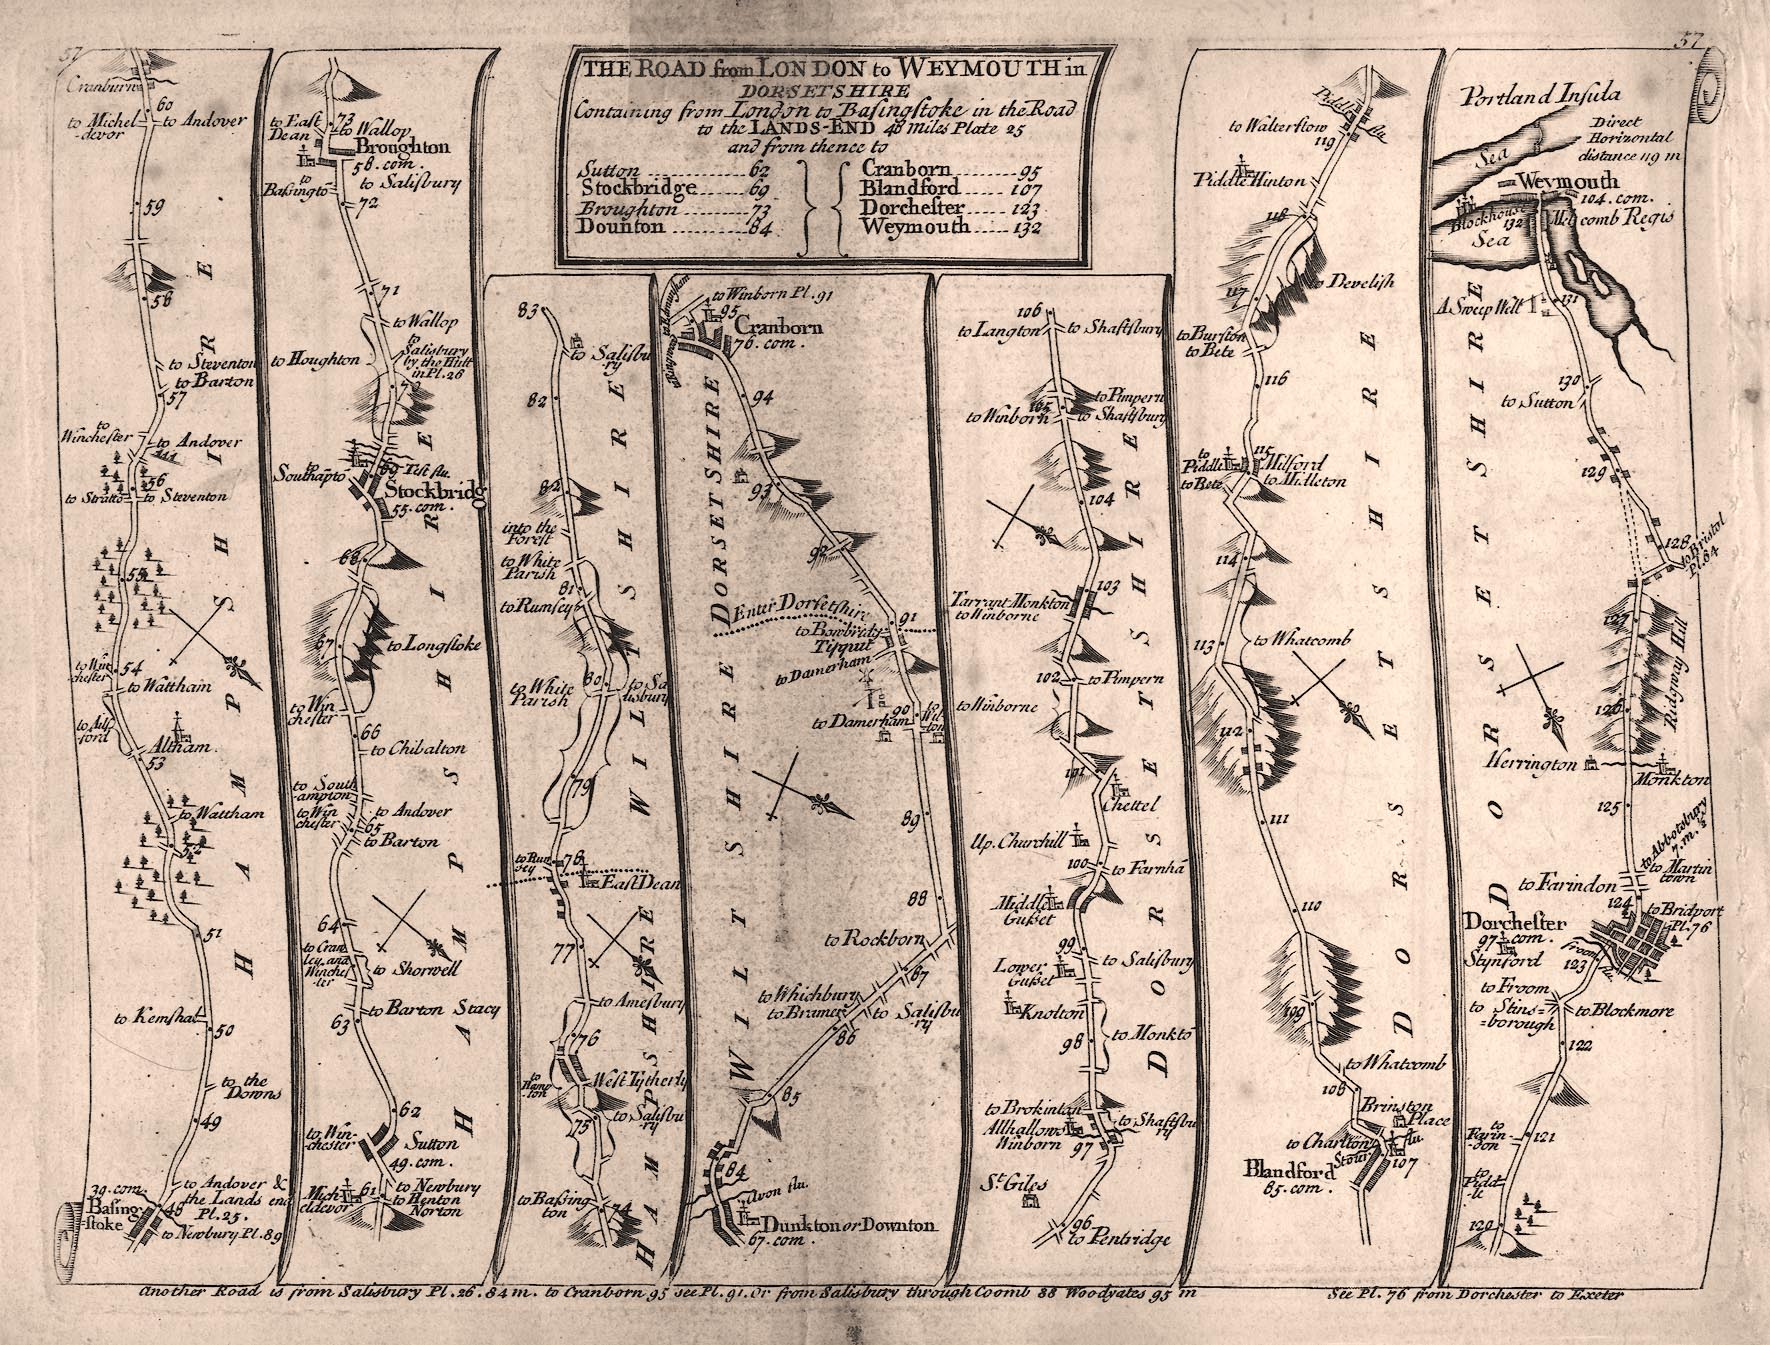 57
57
THE ROAD from LONDON to WEYMOUTH in
DORSETSHIRE
Containing from London to Basingstoke in the Road
to the LANDS-END 48 miles Plate 25
and from thence to
Sutton 62
Stockbridge 69
Broughton 73
Dounton 84
Cranborn 95
Blandford 107
Dorchester 123
Weymouth 132
Cranburn
60
to Michel
-devor
to Andover
59
58
to Steventon
to Barton
57
to
Winchester
to Andover
56
to Stratto
to Steventon
55
to Win
chester
54
to Waltham
to Alſ
ford
Altham
53
to Waltham
52
51
to Kemshal
50
to the
Downs
49
to Andover &
the Lands end
Pl. 25.
39. com.
Basing
-stoke
48
to Newbury Pl. 89
HAMPSHIRE
to East
Dean
73
to Wallop
Broughton
58. com.
to
Basingto
to Salisbury
72
71
to Wallop
to Houghton
to
Salisbury
by the Hutt
in Pl. 26
70
to
Southapto
69
Test flu.
Stockbridg
55. com.
68
67
to Longstoke
to Win
chester
66
to Chibalton
to South
-ampton
to Win
chester
to Andover
65
to Barton
64
to Craw
ley and
Winches
ter
to Shorwell
to Barton Stacy
63
62
to Win-
chester
Sutton
49. com.
Mich
eldevor
61
to Newbury
to Henton
Norton
HAMPSHIRE
83
to Salisbu
-ry
82
82
into the
Forest
to White
Parish
81
to Rumsey
to White
Parish
80
to Sa
lisbury
79
78
to Rum
sey
East Dean
77
to Amesbury
76
to
Hamp
-ton
West Tytherly
to Salisbu
ry
75
to Basing
ton
74
WILTSHIRE
HAMPSHIRE
to Ringwood
to Winborn Pl. 91
95
Cranborn
76. com.
94
93
92
Enter Dorsetshire
91
to Bowbridg
Tipput
to Damerham
90
to Damerham
to
Wil
ton
89
88
to Rockborn
87
to Whichbury
to Bramer
to Salisbu
-ry
86
85
84
Avon flu.
Dunkton or Downton
67. com.
DORSETSHIRE
WILTSHIRE
106
to Langton
to Shaftsbury
to Pimpern
105
to Winborn
to Shaftsbury
104
103
Tarrant Monkton
to Winborne
102
to Pimpern
to Winborne
101
Chettel
Up. Churchill
100
to Farnhā
Middle
Gusset
99
to Salisbury
Lower
Gusset
Knolton
98
to Monktō
to Brokinton
Allhallows
Winborn
97
to Shaftsbu
ry
St. Giles
96
to Pentridge
DORSETSHIRE
Piddle
flu.
to Walterstow
119
Piddle Hinton
118
117
to Develish
to Burston
to Bete
116
115
to
Piddle
to Bete
Milford
to Midleton
114
113
to Whatcomb
112
111
110
109
to Whatcomb
108
Brinston
Place
to Charlton
Stour
flu.
Blandford
85. com.
107
DORSETSHIRE
Portland Insula
Direct
Horizontal
distance 119 m
Sea
Weymouth
104. com.
Blockhouse
132
Melcomb Regis
Sea
A Sweep Well
131
130
to Sutton
129
128
to Bristol
Pl. 64
127
Ridgway Hill
126
Herrington
Monkton
125
to Abbotsbury
7. m. ½
to Martin
town
to Farindon
124
Dorchester
97. com.
to Bridport
Pl. 76
Stynford
Froom
flu.
123
to Froom
to Stins=
=borough
to Blockmore
122
to
Farin-
don
121
to
Pidd-
le
120
DORSETSHIRE
Another Road is from Salisbury Pl. 26. 84 m. to Cranborn 95 see Pl. 91. Or from Salisbury through Coomb 88 Woodyates 95 m
See Pl. 76 from Dorchester to Exeter